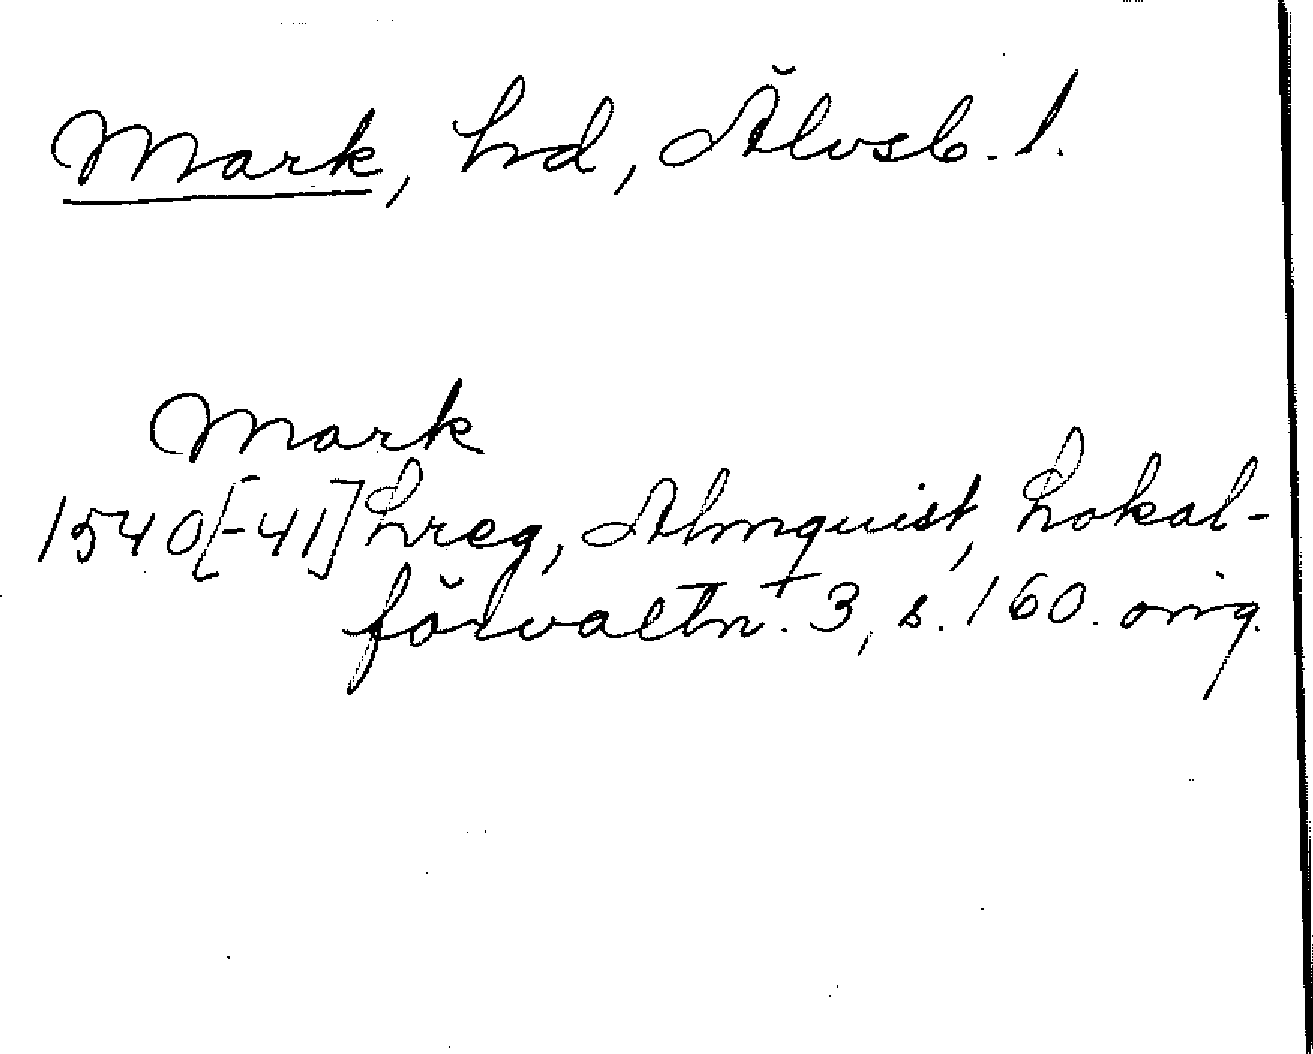 Mark, hd, Älvsb. l.
Mark
1540[-41] Lreg, Almquist, Lokal-
förvaltn. 3, s. 160. orig.